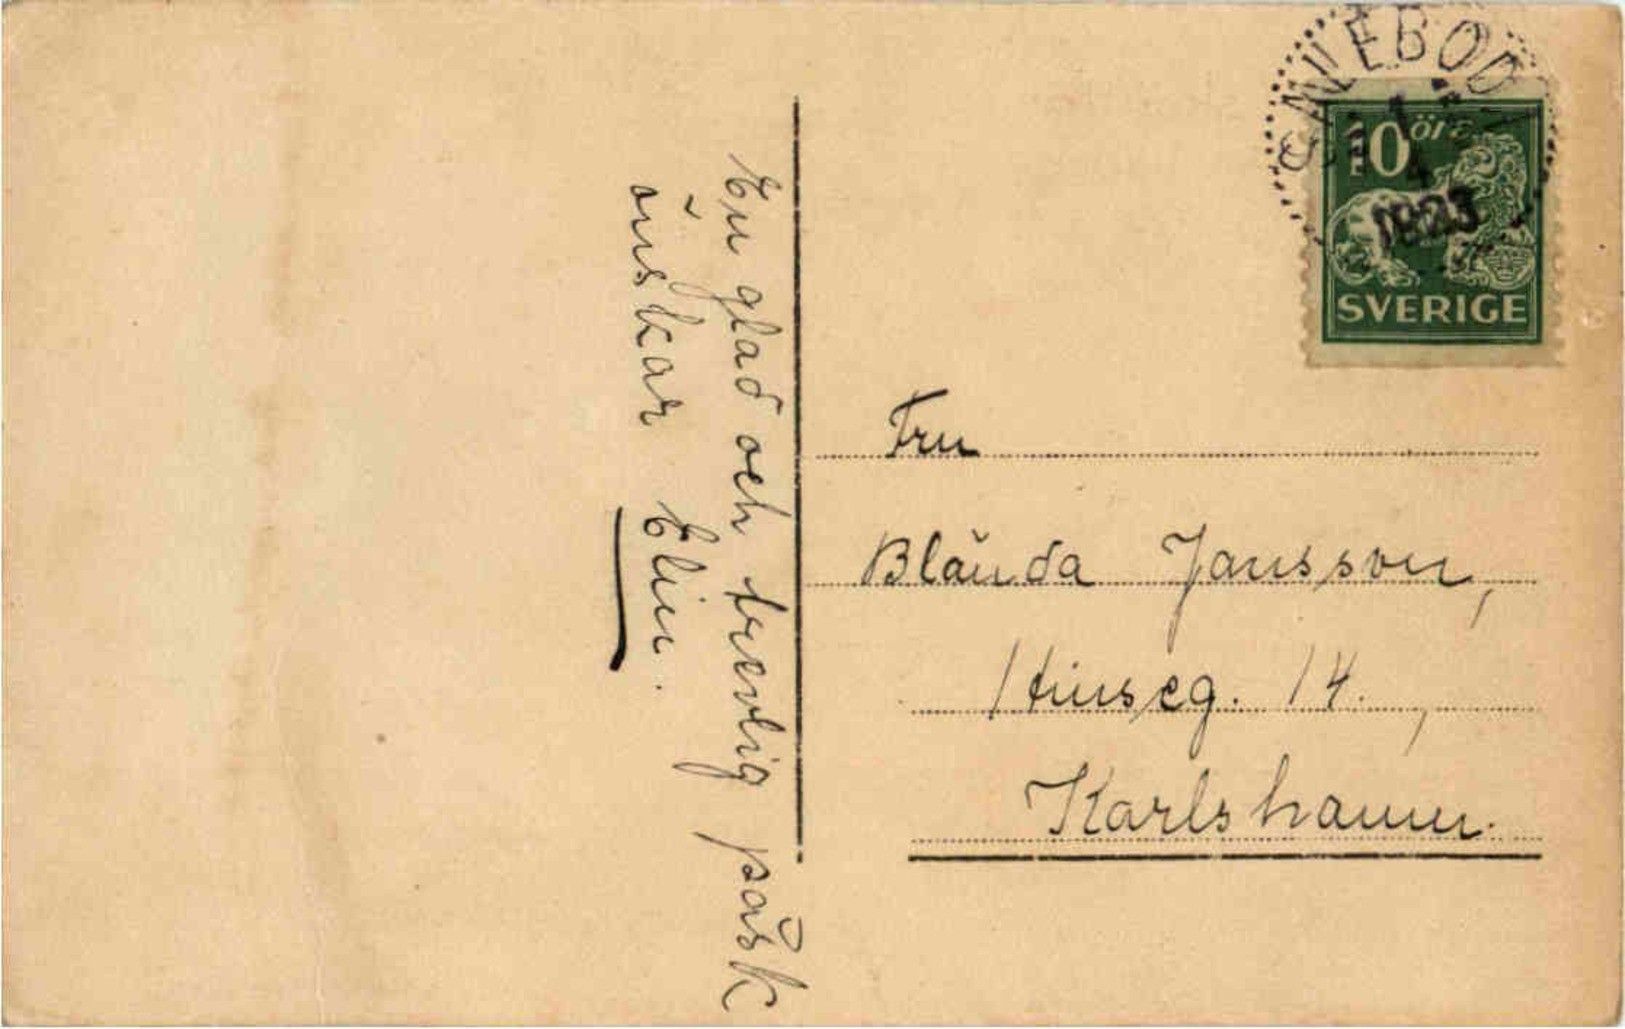 10 öre
1923
SVERIGE
En glad och trevlig påsk
önskar Elin.
Fru
Blända Jansson,
14.,
Karlshamn.